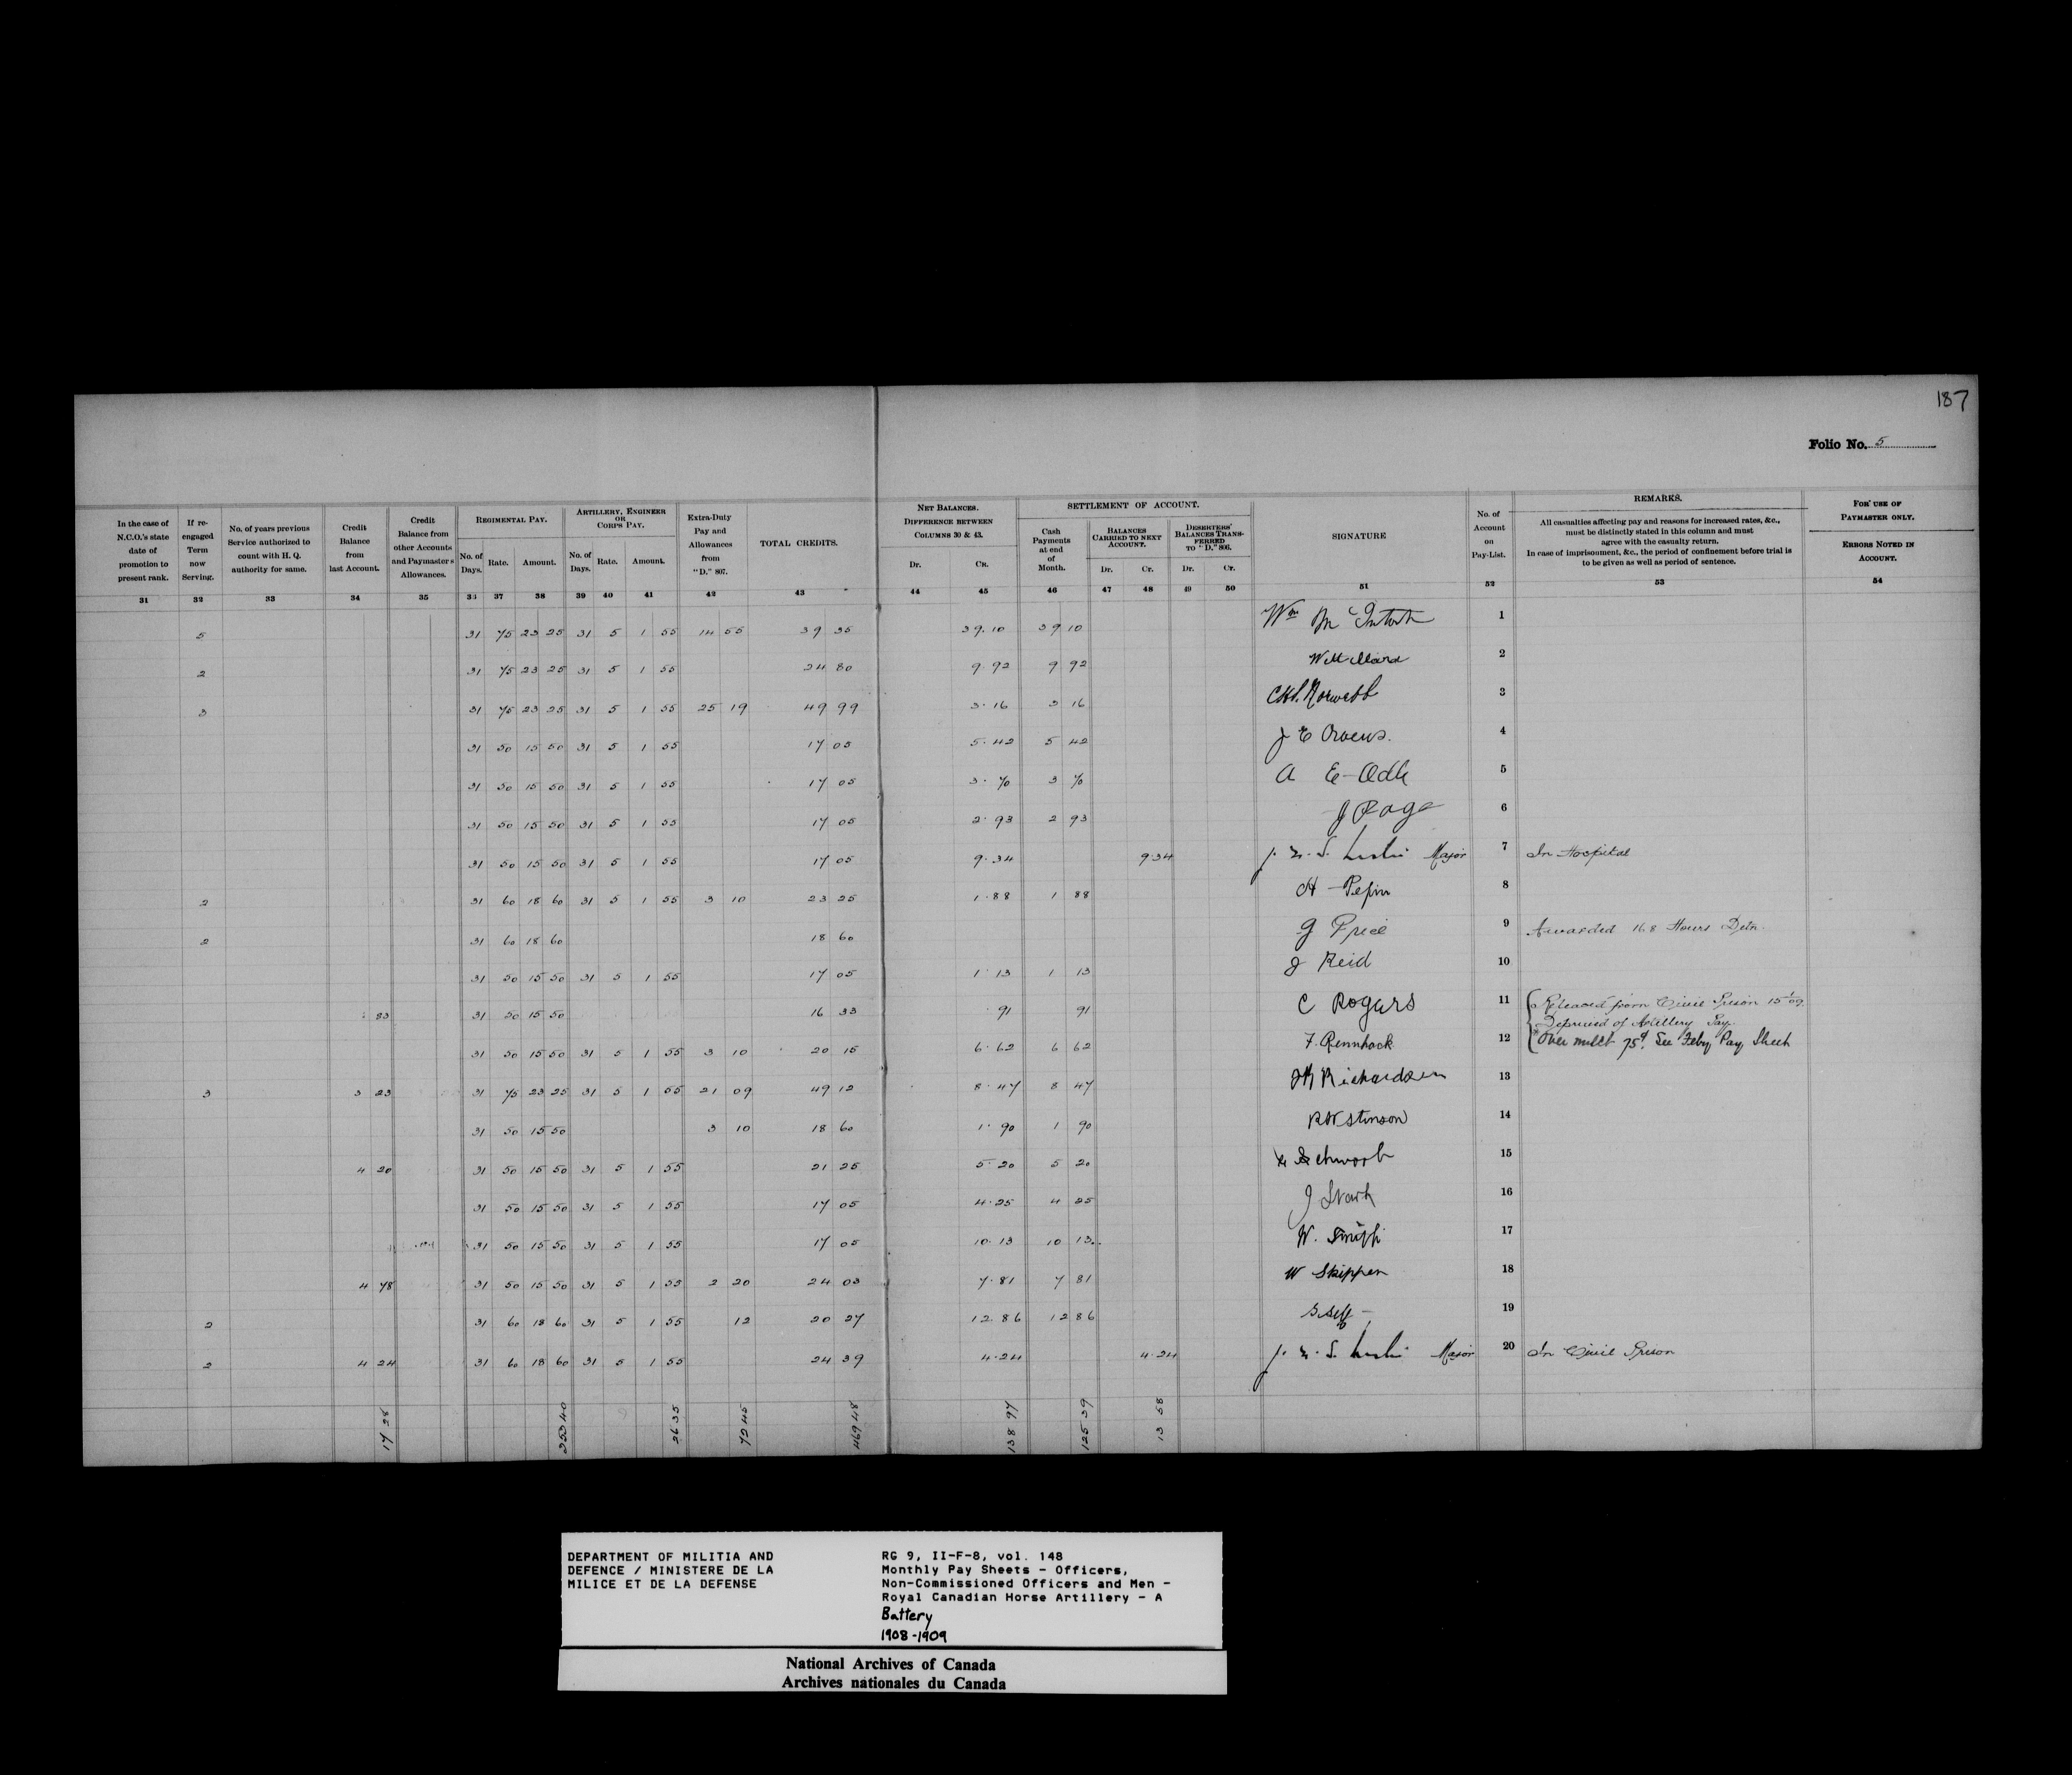 187
Folio No. 5
In the case of N.C.O.'s state date of promotion to present rank. 31
If re-engaged Term now Serving. 32
No. of years previous Service authorized to count with H. Q. authority for same. 33
Credit Balance from last Account. 34
Credit Balance from other Accounts and Paymaster's Allowances. 35
REGIMENTAL PAY. No. of Days. 36 Rate. 37 Amount. 38
ARTILLERY, ENGINEER OR CORPS PAY. No. of Days. 39 Rate. 40 Amount. 41
Extra-Duty Pay and Allowances from "D." 807. 42
TOTAL CREDITS. 43
NET BALANCES. DIFFERENCE BETWEEN COLUMNS 30 & 43. Dr. 44 CR. 45
SETTLEMENT OF ACCOUNT.
Cash Payments at end of Month. 46
BALANCES CARRIED TO NEXT ACCOUNT. Dr. 47 Cr. 48
DESERTERS' BALANCES TRANSFERRED TO "D." 806. Dr. 49 Cr. 50
SIGNATURE 51
No. of Account on Pay-List. 52
REMARKS.
All casualties affecting pay and reasons for increased rates, &c., must be distinctly stated in this column and must agree with the casualty return.
In case of imprisonment, &c., the period of confinement before trial is to be given as well as period of sentence. 53
FOR USE OF PAYMASTER ONLY.
ERRORS NOTED IN ACCOUNT. 54
5 31 75 23 25 31 5 1 55 14 55 39 35 39.10 39 10 Wm McIntosh 1
2 31 75 23 25 31 5 1 55 24 80 9.92 9 92 2
3 31 75 23 25 31 5 1 55 25 19 49 99 3.16 3 16 3
31 50 15 50 31 5 1 55 17 05 5.42 5 42 J E Owens. 4
31 50 15 50 31 5 1 55 17 05 3.70 3 70 A E 5
31 50 15 50 31 5 1 55 17 05 2.93 2 93 J Page 6
31 50 15 50 31 5 1 55 17 05 9.34 9.34 J. N. S. Leslie Major 7 In Hospital
2 31 60 18 60 31 5 1 55 3 10 23 25 1.88 1 88 H Pepin 8
2 31 60 18 60 18 60 G Price 9 Awarded 168 Hours Detn.
31 50 15 50 31 5 1 55 17 05 1.13 1 13 J Reid 10
83 31 50 15 50 16 33 .91 91 C Rogers 11 Released from Civil Prison 15/1/09.
Deprived of Artillery Pay.
31 50 15 50 31 5 1 55 3 10 20 15 6.62 6 62 F. Rennhack 12 *Over mulct 75¢. See Feby Pay Sheet
3 3 23 31 75 23 25 31 5 1 55 21 09 49 12 8.47 8 47 Richardson 13
31 50 15 50 3 10 18 60 1.90 1 90 R W Stinson 14
4 20 31 50 15 50 31 5 1 55 21 25 5.20 5 20 15
31 50 15 50 31 5 1 55 17 05 4.25 4 25 J Stark 16
31 50 15 50 31 5 1 55 17 05 10.13 10 13 W. 17
4 78 31 50 15 50 31 5 1 55 2 20 24 03 7.81 7 81 W Skippen 18
2 31 60 18 60 31 5 1 55 12 20 27 12.86 12 86 S. Self 19
2 4 24 31 60 18 60 31 5 1 55 24 39 4.24 4.24 J. N. S. Leslie Major 20 In Civil Prison
17 28 353 40 26 35 72 45 469 48 138 97 125 39 13 58
DEPARTMENT OF MILITIA AND
DEFENCE / MINISTERE DE LA
MILICE ET DE LA DEFENSE
RG 9, II-F-8, vol. 148
Monthly Pay Sheets - Officers,
Non-Commissioned Officers and Men -
Royal Canadian Horse Artillery - A
Battery
1908-1909
National Archives of Canada
Archives nationales du Canada